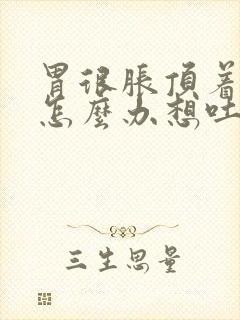 胃很脹頂着
怎麼办想吐
三生思量